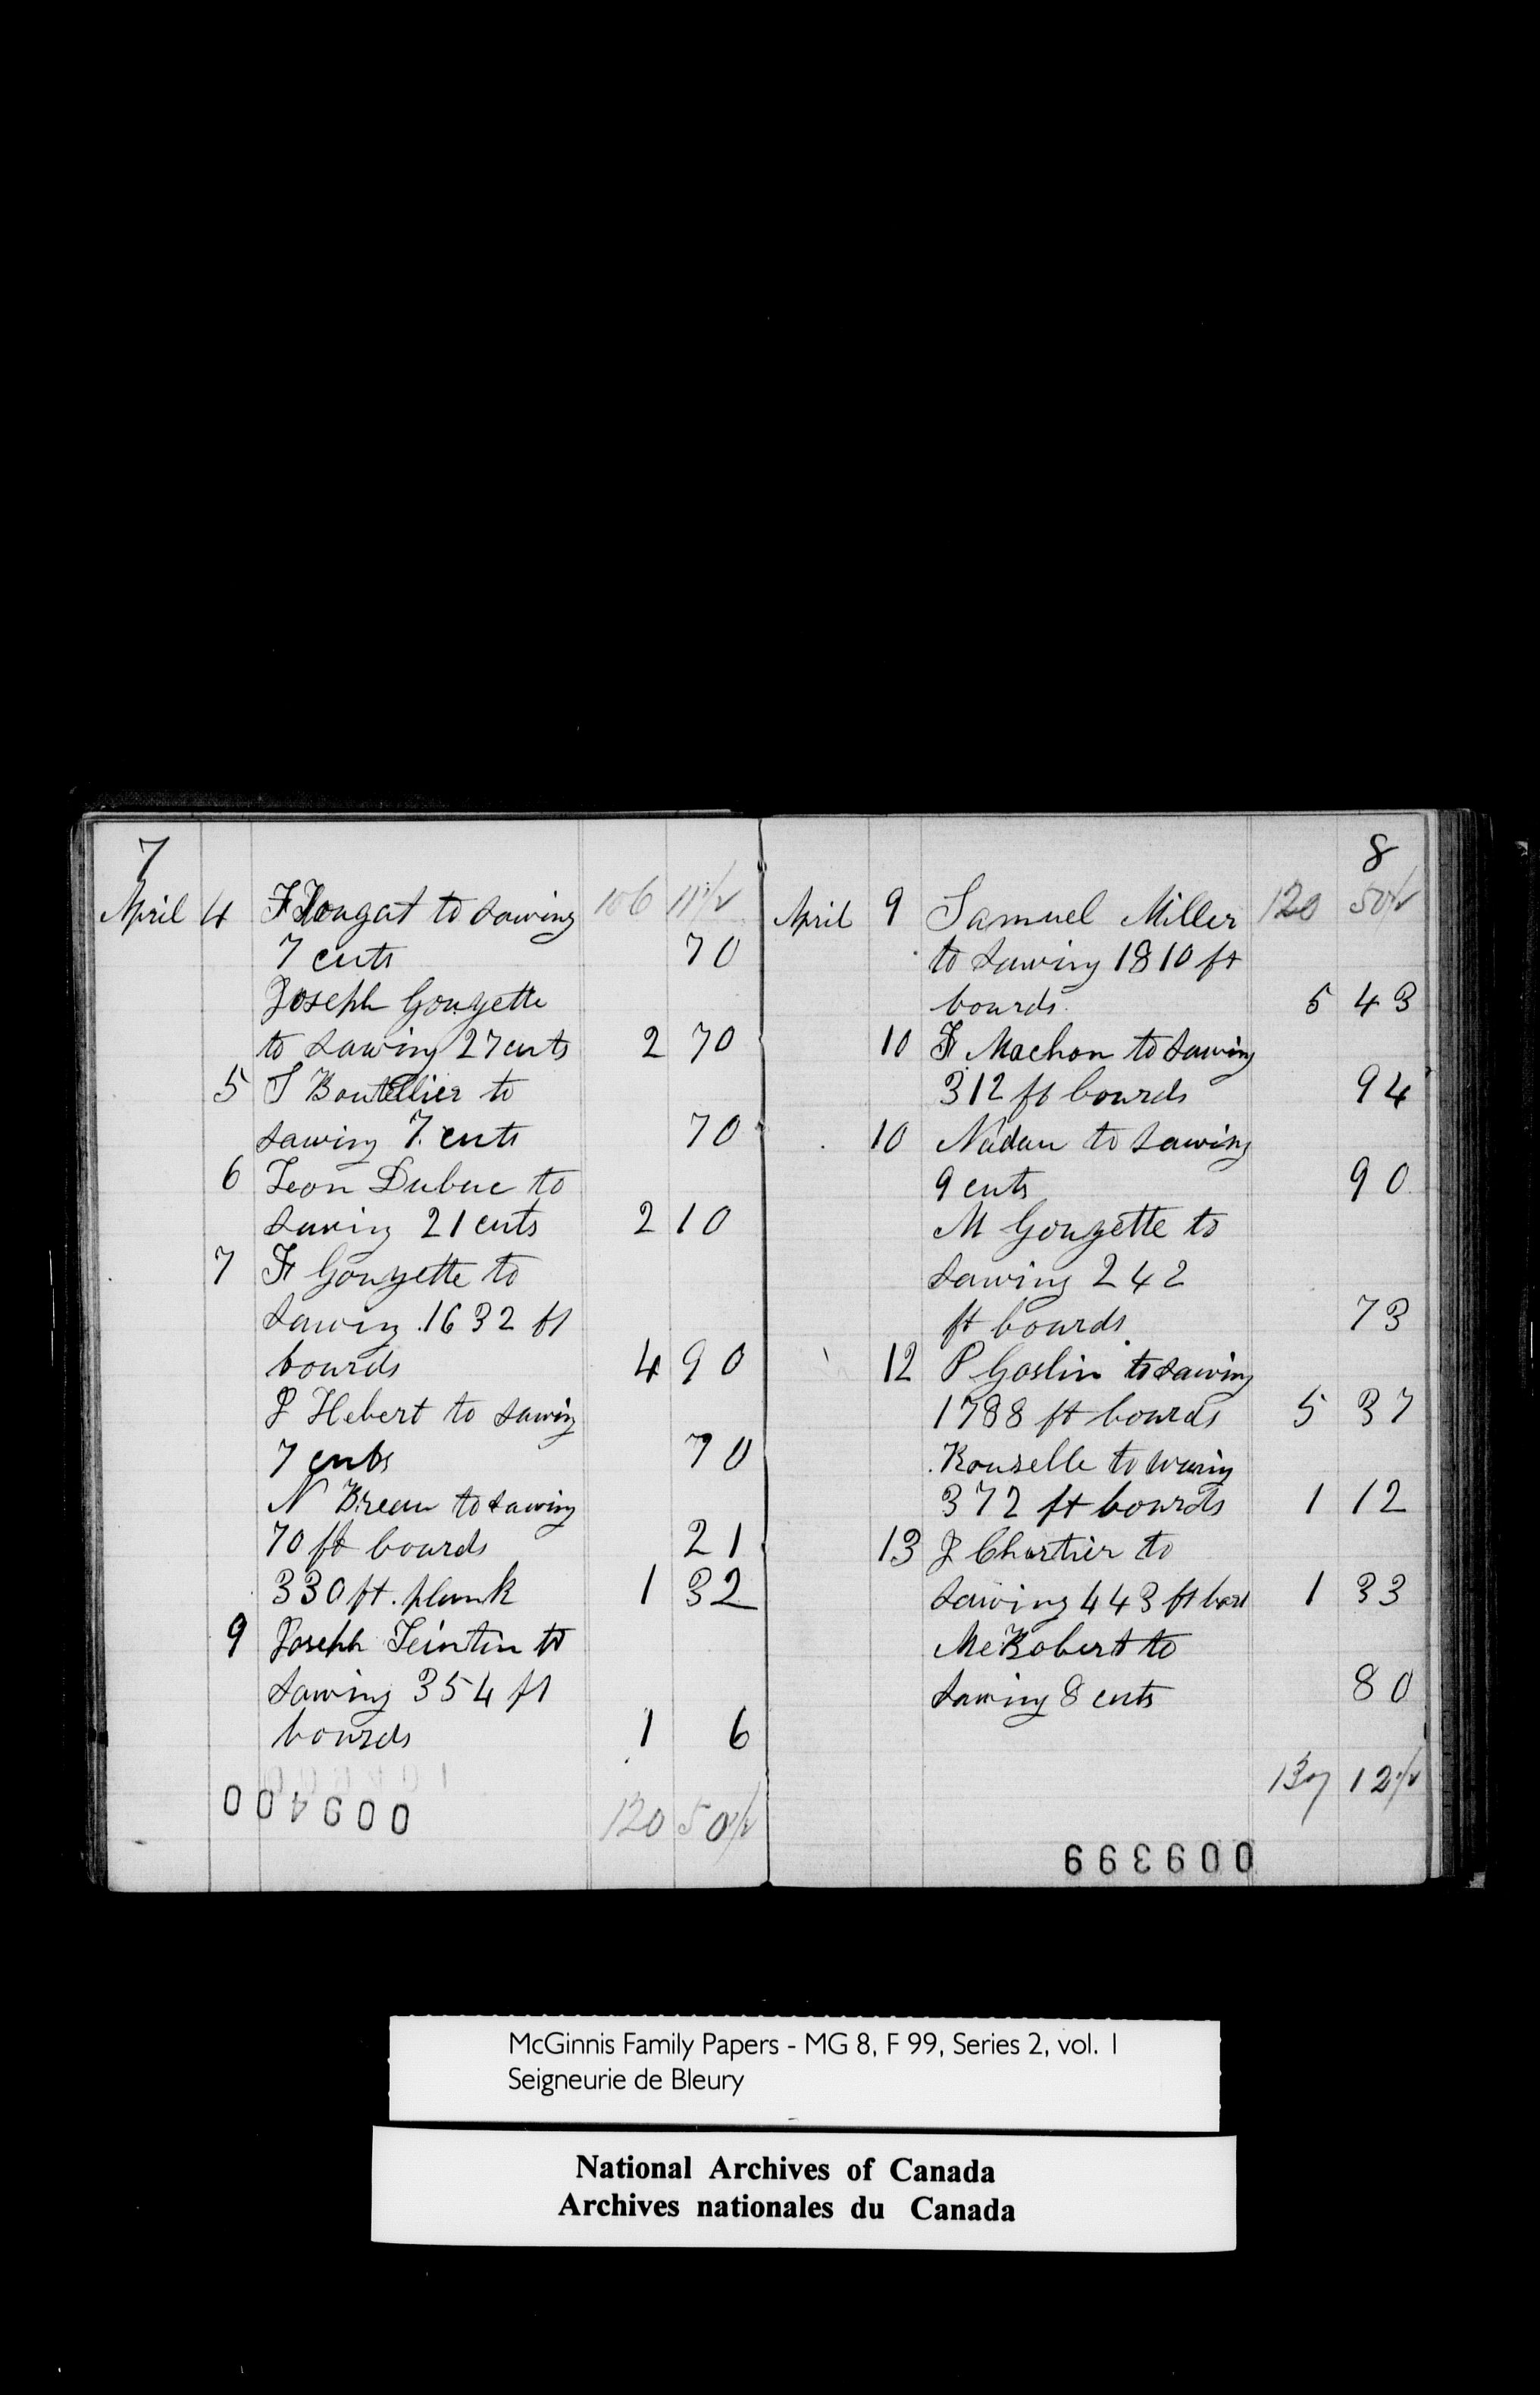 7
April 4 F Dougat to sawing 106 11½
7 cuts 70
Joseph Gouyette
to sawing 27 cuts 2 70
5 S Boutellier to
sawing 7 cuts 70
6 Leon Dubuc to
sawing 21 cuts 2 10
7 F Gouyette to
sawing 1632 ft
bourds 4 90
J Hebert to sawing
7 cuts 70
N Breau to sawing
70 ft bourds 21
330 ft. plank 1 32
9 Joseph Teintin to
sawing 354 ft
bourds 1 6
120 50½
009400
8
April 9 Samuel Miller 120 50½
to sawing 1810 ft
bourds 5 43
10 F Machon to sawing
312 ft bourds 94
10 Nadau to sawing
9 cuts 90
M Gouyette to
sawing 242
ft bourds 73
12 P Goslin to sawing
1788 ft bourds 5 37
Rouselle to
372 ft bourds 1 12
13 J Chartier to
sawing 443 ft 1 33
Mc Robert to
sawing 8 cuts 80
137 12½
009399
McGinnis Family Papers - MG 8, F 99, Series 2, vol. 1
Seigneurie de Bleury
National Archives of Canada
Archives nationales du Canada